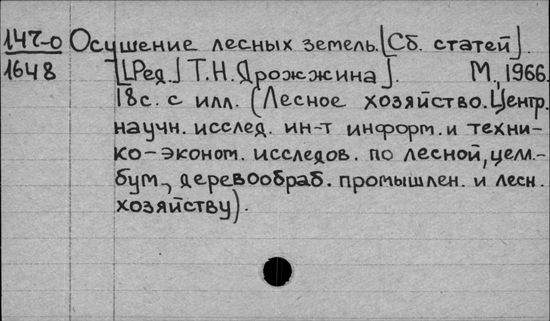 147-0 Осушение лесных земель. [Сб. статей].
1648 [[Ред.] Т.Н. Дрожжина]. М., 1966.
18с. с илл. (Лесное хозяйство. Центр.
научн. исслед. ин-т информ. и техни-
ко-эконом. исследов. по лесной, целл.-
бум., деревообраб. промышлен. и лесн.
хозяйству).